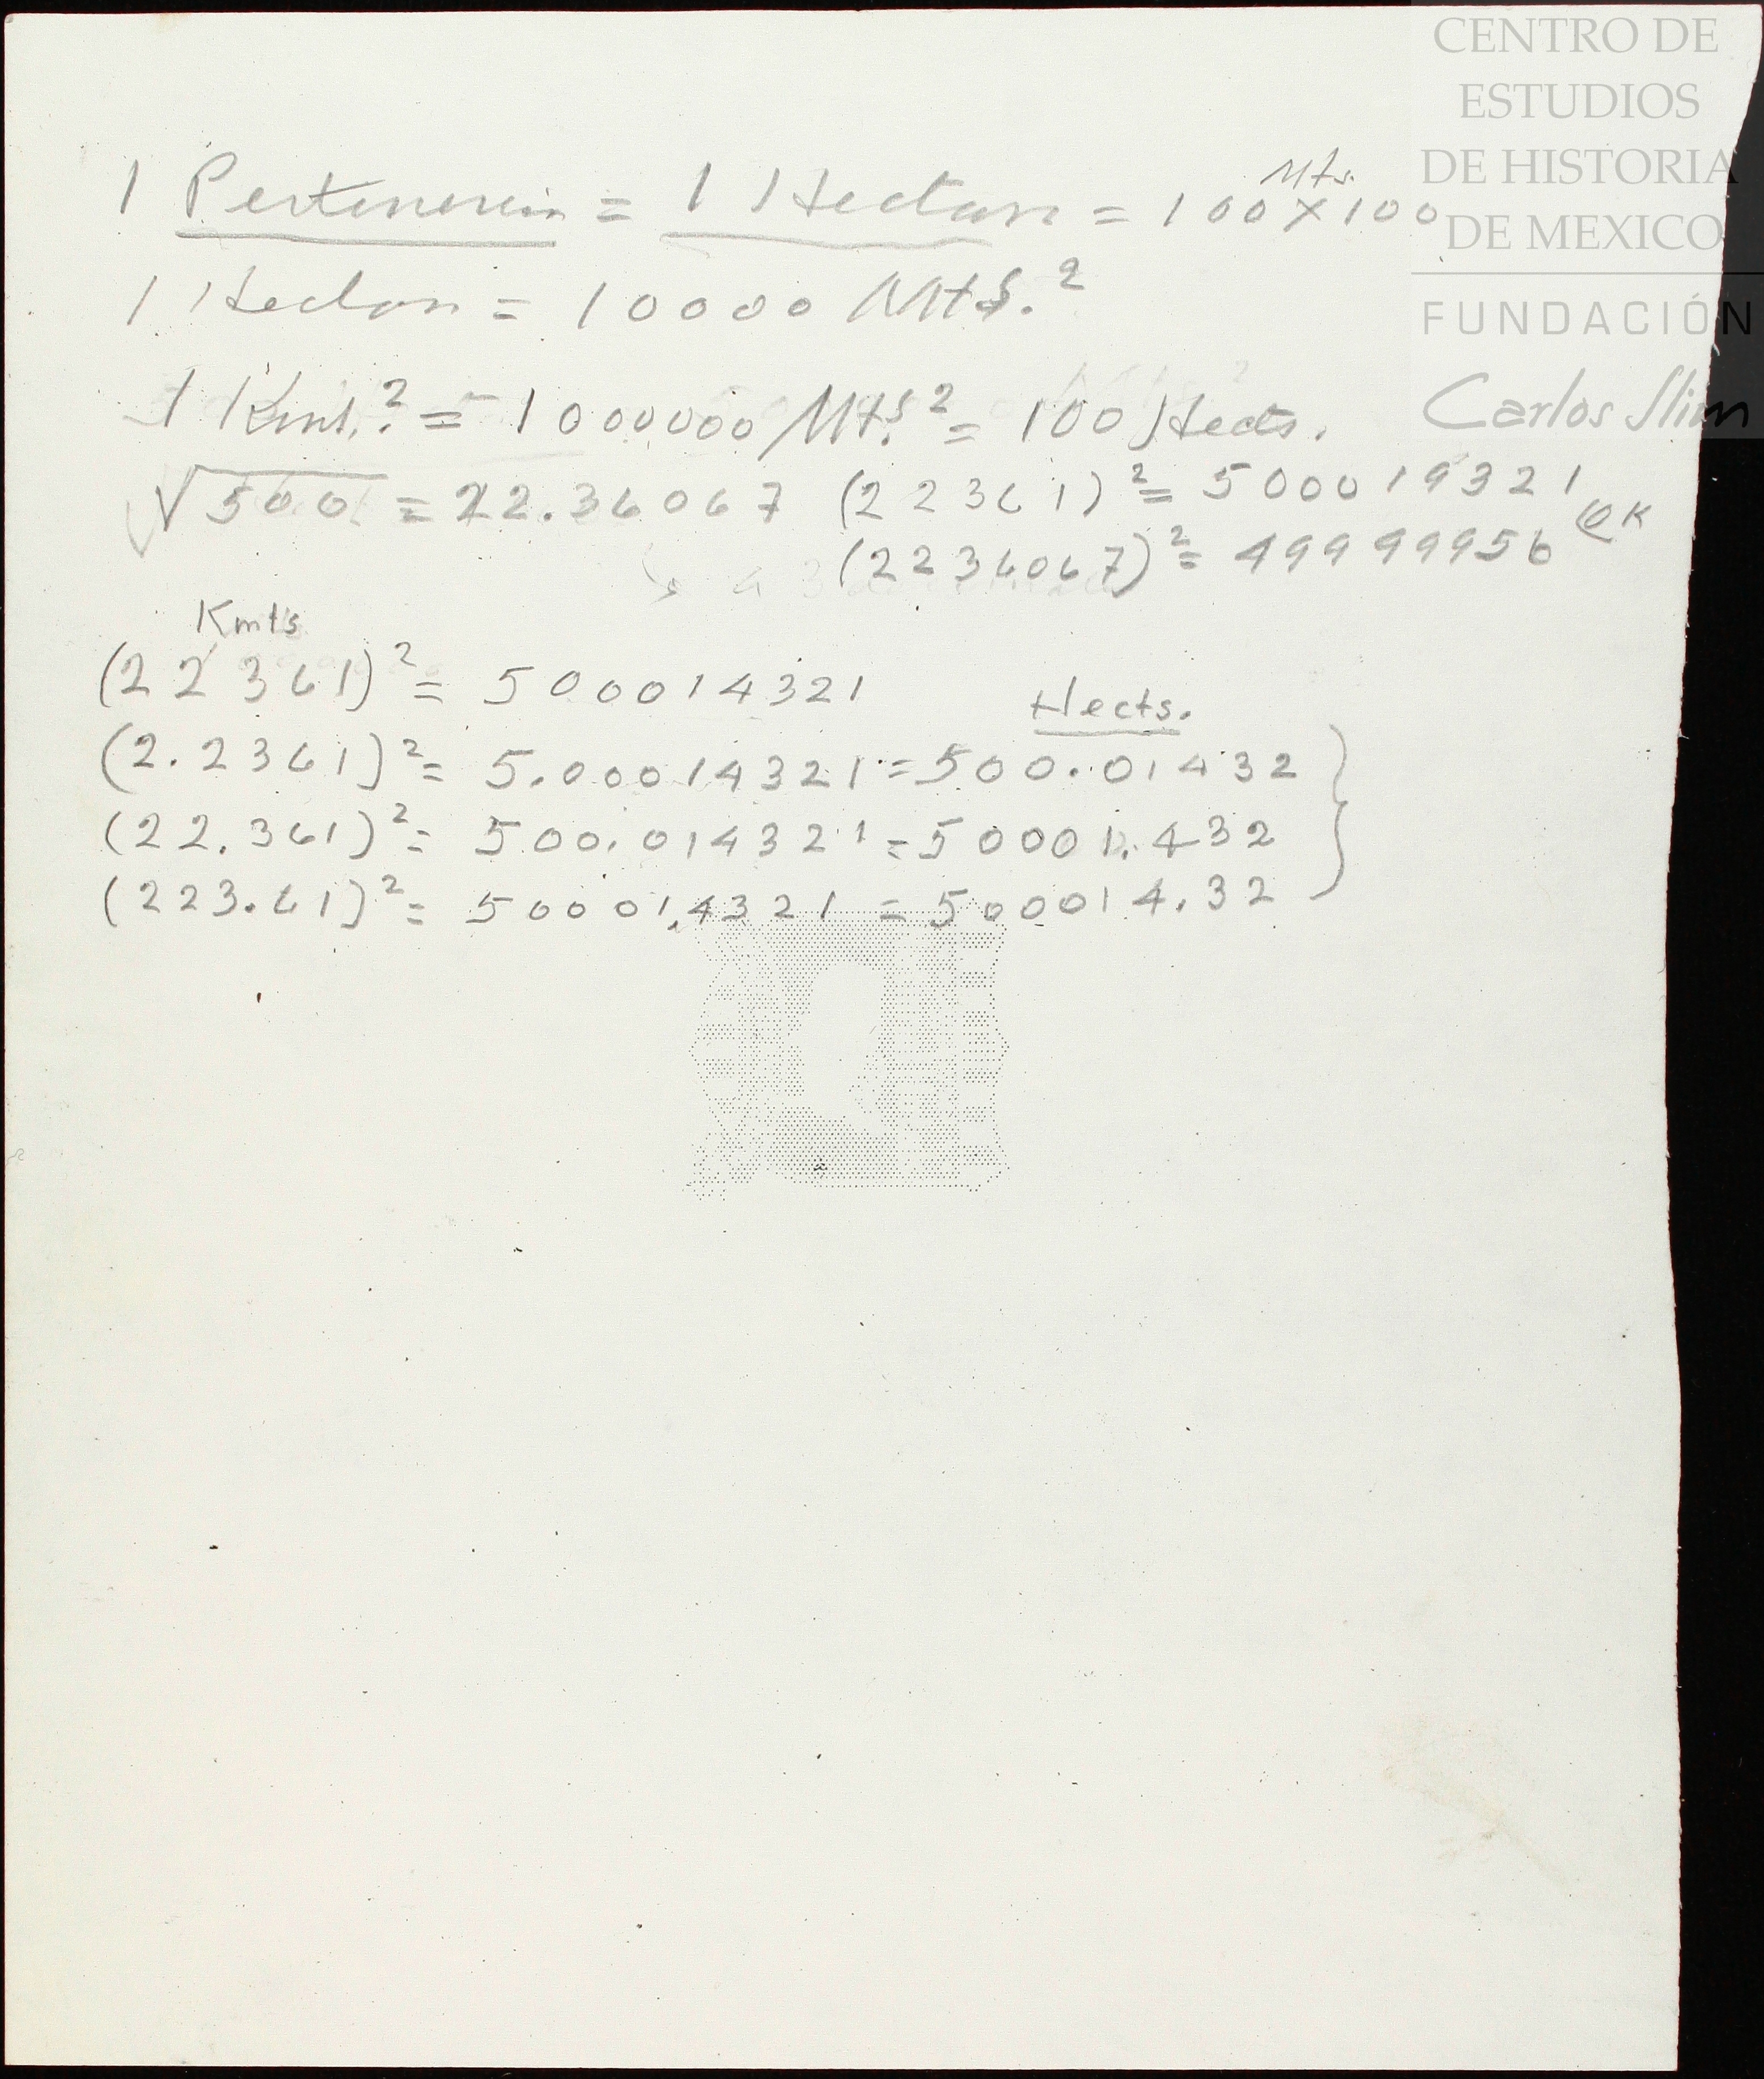 CENTRO DE
ESTUDIOS
DE HISTORIA
DE MEXICO
FUNDACIÓN
Carlos Slim
Mts.
1 Pertenencia = 1 Hectara = 100 X 100
1 Hectara = 10000 Mts.²
1 Kmt.² = 1000000 Mts.² = 100 Hects.
√500 = 22.36067 (22361)² = 500019321
(2236067)² = 49999956 OK
Kmts
(22361)² = 500014321
Hects.
(2.2361)² = 5.00014321 = 500.01432
(22.361)² = 500.014321 = 50001.432
(223.61)² = 50001.4321 = 500014.32